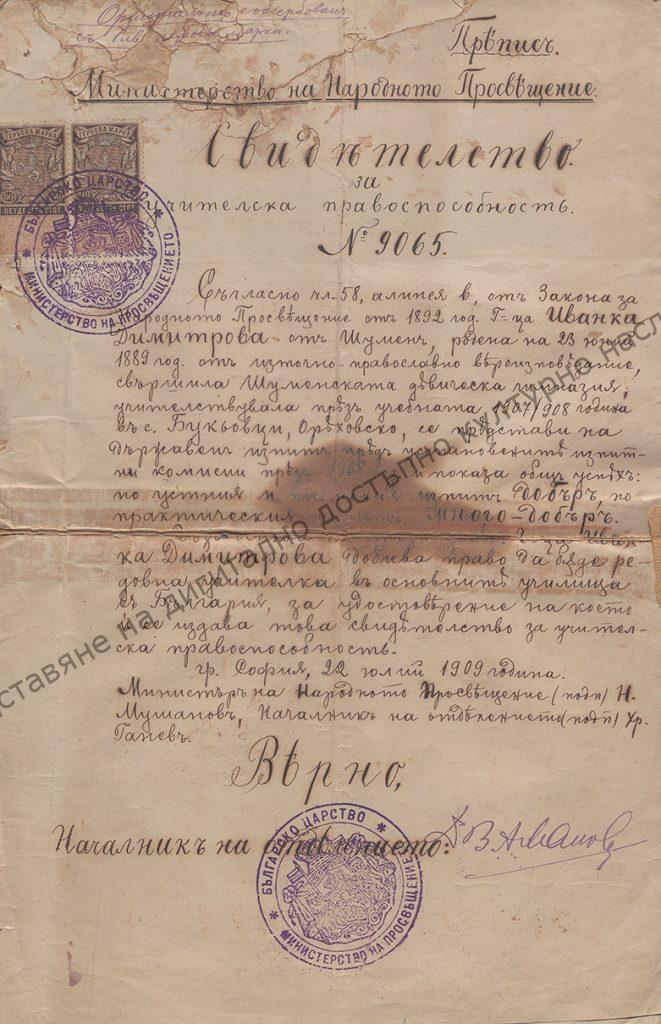 Оригиналътъ е обгербованъ
съ 1 лв. гербова марка.
Прѣписъ.
Министерство на Народното Просвѣщение.
Свидѣтелство
за
учителска правоспособность.
№ 9065.
ГЕРБОВА МАРКА ГЕРБОВА МАРКА
БЪЛГАРСКО ЦАРСТВО * МИНИСТЕРСТВО НА ПРОСВѢЩЕНИЕТО *
Съгласно чл. 58, алинея в, отъ Закона за
Народното Просвѣщение отъ 1892 год. Г-ца Иванка
Димитрова отъ Шуменъ, родена на 23 юний
1889 год. отъ източно-православно вѣроизповѣдание,
свършила Шуменската дѣвическа гимназия,
учителствувала прѣзъ учебната 1907/908 година
въ с. Букьовци, Орѣховско, се прѣдстави на
Държавенъ изпитъ прѣдъ установенитѣ изпит-
ни комисии прѣзъ 1908 и показа общъ успѣхъ:
по устния и писмения изпитъ Добъръ, по
практическия изпитъ Много-добъръ.
г-ца Иван-
ка Димитрова добива право да бѫде ре-
довна учителка въ основнитѣ училища
въ България, за удостовѣрение на което
и се издава това свидѣтелство за учител-
ска правоспособность.
гр. София, 22 юлий 1909 година.
Министъръ на Народното Просвѣщение (подп) Н.
Мушановъ, Началникъ на отдѣлението (подп) Хр.
Ганевъ.
Вѣрно,
Началникъ на отдѣлението:
БЪЛГАРСКО ЦАРСТВО * МИНИСТЕРСТВО НА ПРОСВѢЩЕНИЕТО *
ставяне на дигитално достъпно културно насл